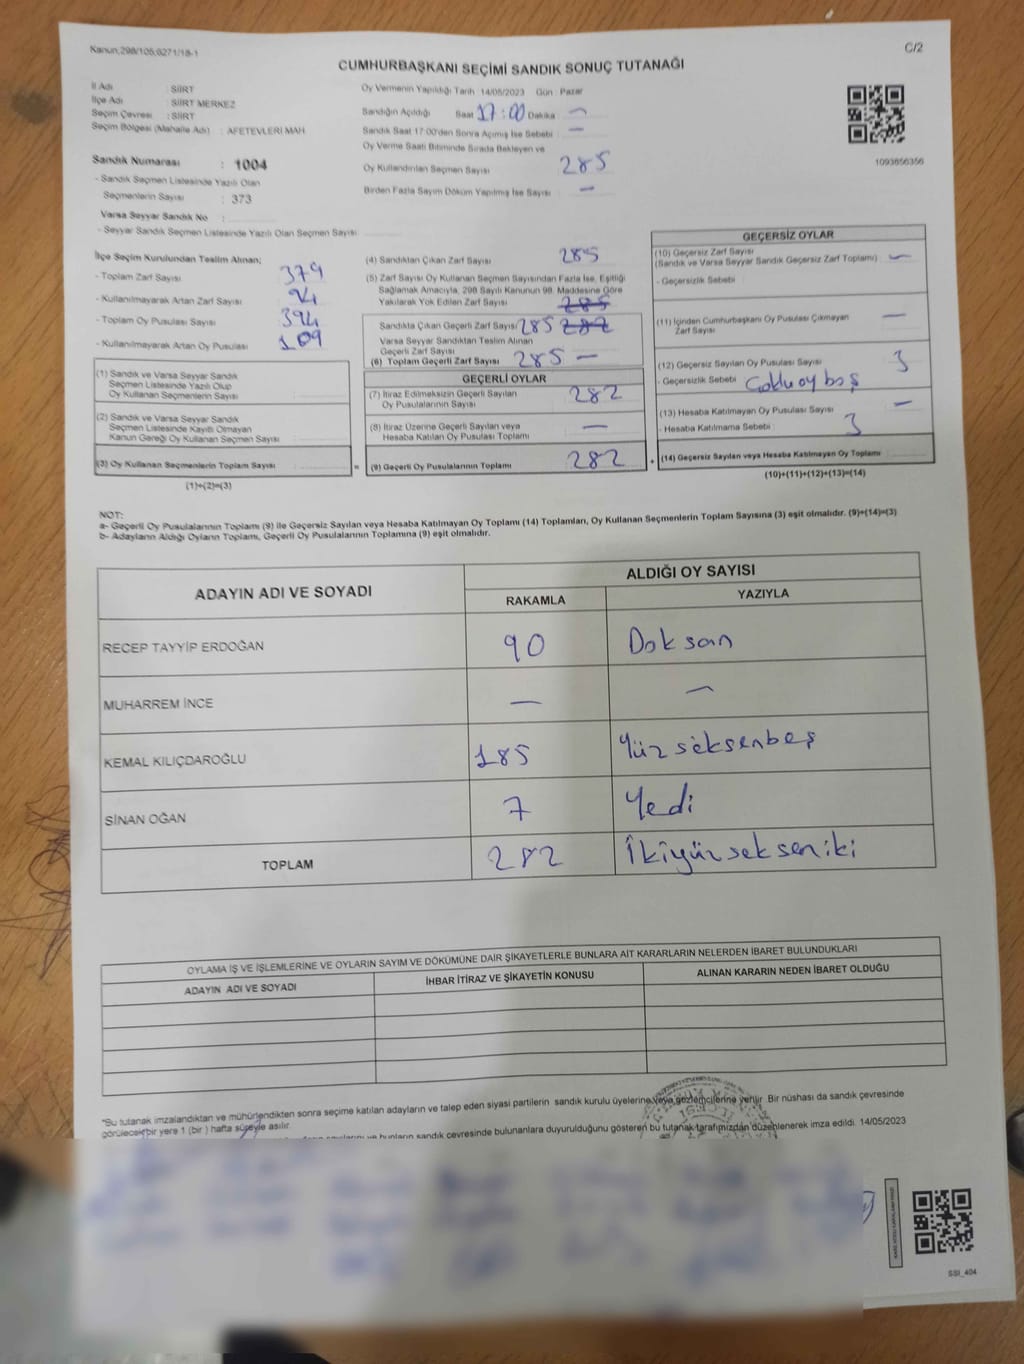 Kanun;298/105;6271/18-1
C/2
CUMHURBAŞKANI SEÇİMİ SANDIK SONUÇ TUTANAĞI
İl Adı : SİİRT
İlçe Adı : SİİRT MERKEZ
Seçim Çevresi : SİİRT
Seçim Bölgesi (Mahalle Adı) : AFETEVLERİ MAH
Sandık Numarası : 1004
- Sandık Seçmen Listesinde Yazılı Olan
Seçmenlerin Sayısı : 373
Varsa Seyyar Sandık No :
- Seyyar Sandık Seçmen Listesinde Yazılı Olan Seçmen Sayısı
Oy Vermenin Yapıldığı Tarih :14/05/2023 Gün : Pazar
Sandığın Açıldığı Saat 17:00 Dakika —
Sandık Saat 17:00'den Sonra Açılmış İse Sebebi : —
Oy Verme Saati Bitiminde Sırada Bekleyen ve
Oy Kullandırılan Seçmen Sayısı 285
Birden Fazla Sayım Döküm Yapılmış İse Sayısı —
1093856356
İlçe Seçim Kurulundan Teslim Alınan;
- Toplam Zarf Sayısı 379
- Kullanılmayarak Artan Zarf Sayısı 94
- Toplam Oy Pusulası Sayısı 394
- Kullanılmayarak Artan Oy Pusulası 109
(1) Sandık ve Varsa Seyyar Sandık
Seçmen Listesinde Yazılı Olup
Oy Kullanan Seçmenlerin Sayısı
(2) Sandık ve Varsa Seyyar Sandık
Seçmen Listesinde Kayıtlı Olmayan
Kanun Gereği Oy Kullanan Seçmen Sayısı
(3) Oy Kullanan Seçmenlerin Toplam Sayısı
(1)+(2)=(3)
(4) Sandıktan Çıkan Zarf Sayısı 285
(5) Zarf Sayısı Oy Kullanan Seçmen Sayısından Fazla İse, Eşitliği
Sağlamak Amacıyla, 298 Sayılı Kanunun 98. Maddesine Göre
Yakılarak Yok Edilen Zarf Sayısı 285
Sandıkta Çıkan Geçerli Zarf Sayısı 285 282
Varsa Seyyar Sandıktan Teslim Alınan
Geçerli Zarf Sayısı
(6) Toplam Geçerli Zarf Sayısı 285 —
GEÇERLİ OYLAR
(7) İtiraz Edilmeksizin Geçerli Sayılan
Oy Pusulalarının Sayısı 282
(8) İtiraz Üzerine Geçerli Sayılan veya
Hesaba Katılan Oy Pusulası Toplamı —
= (9) Geçerli Oy Pusulalarının Toplamı 282 +
GEÇERSİZ OYLAR
(10) Geçersiz Zarf Sayısı
(Sandık ve Varsa Seyyar Sandık Geçersiz Zarf Toplamı) —
- Geçersizlik Sebebi
(11) İçinden Cumhurbaşkanı Oy Pusulası Çıkmayan
Zarf Sayısı —
(12) Geçersiz Sayılan Oy Pusulası Sayısı 3
- Geçersizlik Sebebi oy boş
(13) Hesaba Katılmayan Oy Pusulası Sayısı —
- Hesaba Katılmama Sebebi 3
(14) Geçersiz Sayılan veya Hesaba Katılmayan Oy Toplamı
(10)+(11)+(12)+(13)=(14)
NOT:
a- Geçerli Oy Pusulalarının Toplamı (9) ile Geçersiz Sayılan veya Hesaba Katılmayan Oy Toplamı (14) Toplamları, Oy Kullanan Seçmenlerin Toplam Sayısına (3) eşit olmalıdır. (9)+(14)=(3)
b- Adayların Aldığı Oyların Toplamı, Geçerli Oy Pusulalarının Toplamına (9) eşit olmalıdır.
ADAYIN ADI VE SOYADI
ALDIĞI OY SAYISI
RAKAMLA YAZIYLA
RECEP TAYYİP ERDOĞAN 90 Doksan
MUHARREM İNCE — —
KEMAL KILIÇDAROĞLU 185 Yüzseksenbeş
SİNAN OĞAN 7 Yedi
TOPLAM 282 İkiyüzsekseniki
OYLAMA İŞ VE İŞLEMLERİNE VE OYLARIN SAYIM VE DÖKÜMÜNE DAİR ŞİKAYETLERLE BUNLARA AİT KARARLARIN NELERDEN İBARET BULUNDUKLARI
ADAYIN ADI VE SOYADI İHBAR İTİRAZ VE ŞİKAYETİN KONUSU ALINAN KARARIN NEDEN İBARET OLDUĞU
*Bu tutanak imzalandıktan ve mühürlendikten sonra seçime katılan adayların ve talep eden siyasi partilerin sandık kurulu üyelerine veya gözlemcilerine verilir. Bir nüshası da sandık çevresinde
görülecek bir yere 1 (bir ) hafta süreyle asılır.
ve bunların sandık çevresinde bulunanlara duyurulduğunu gösteren bu tutanak tarafımızdan düzenlenerek imza edildi. 14/05/2023
SSI_404